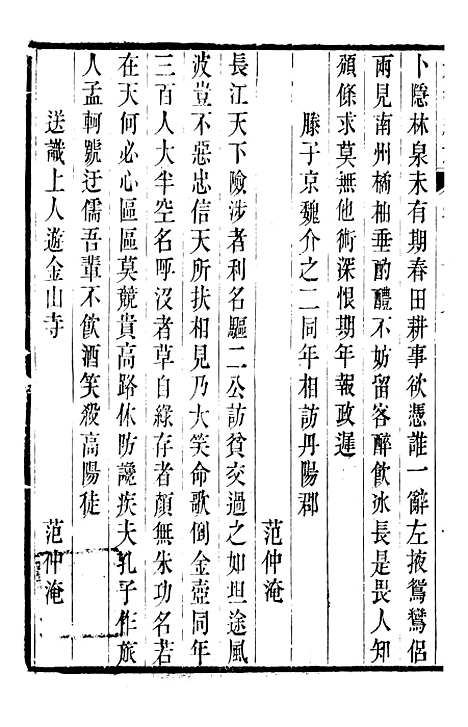 卜隱林泉未有期春田耕事欲憑誰一辭左掖鴛鸞侶
兩見南州橘柚垂酌醴不妨留客醉飲冰長是畏人知
頒條求莫無他術深恨期年報政遲
滕子京魏介之二同年相訪丹陽郡
范仲淹
長江天下險涉者利名驅二公訪貧交過之如坦途風
波豈不惡忠信天所扶相見乃大笑命歌倒金壺同年
三百人大半空名呼沒者草自綠存者顏無朱功名若
在天何必心區區莫競貴高路休防讒疾夫孔子作旅
人孟軻號迂儒吾輩不飲酒笑殺高陽徒
送識上人遊金山寺
范仲淹